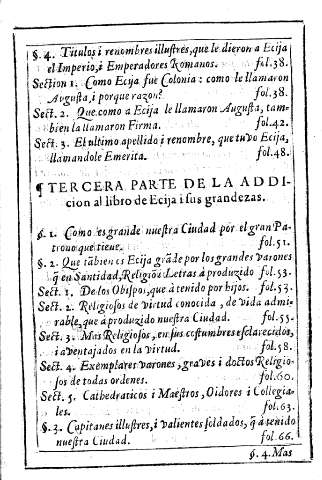 §. 4. Titulos i renombres illustres, que le dieron a Ecija
el Imperio, i Emperadores Romanos. fol. 38.
Section 1. Como Ecija fue Colonia: como le llamaron
Augusta, i porque razon? fol. 38.
Sect. 2. Que como a Ecija le llamaron Augusta, tam-
bien la llamaron Firma. fol. 42.
Sect. 3. El ultimo apellido i renombre, que tuvo Ecija,
llamandole Emerita. fol. 48.
¶ TERCERA PARTE DE LA ADDI-
cion al libro de Ecija i sus grandezas.
§. 1. Como es grande nuestra Ciudad por el gran Pa-
trono que tiene. fol. 51.
§. 2. Que tābien es Ecija grāde por los grandes varones
q̄ en Santidad, Religiō i Letras à produzido fol. 53.
Sect. 1. De los Obispos, que à tenido por hijos. fol. 53.
Sect. 2. Religiosos de virtud conocida, de vida admi-
rable, que à produzido nuestra Ciudad. fol. 55.
Sect. 3. Mas Religiosos, en sus costumbres esclarecidos,
i aventajados en la virtud. fol. 58.
Sect. 4. Exemplares varones, graves i doctos Religio-
sos de todas ordenes. fol. 60.
Sect. 5. Cathedraticos i Maestros, Oidores i Collegia-
les. fol. 63.
§. 3. Capitanes illustres, i valientes soldados, q̄ à tenido
nuestra Ciudad. fol. 66.
§. 4. Mas